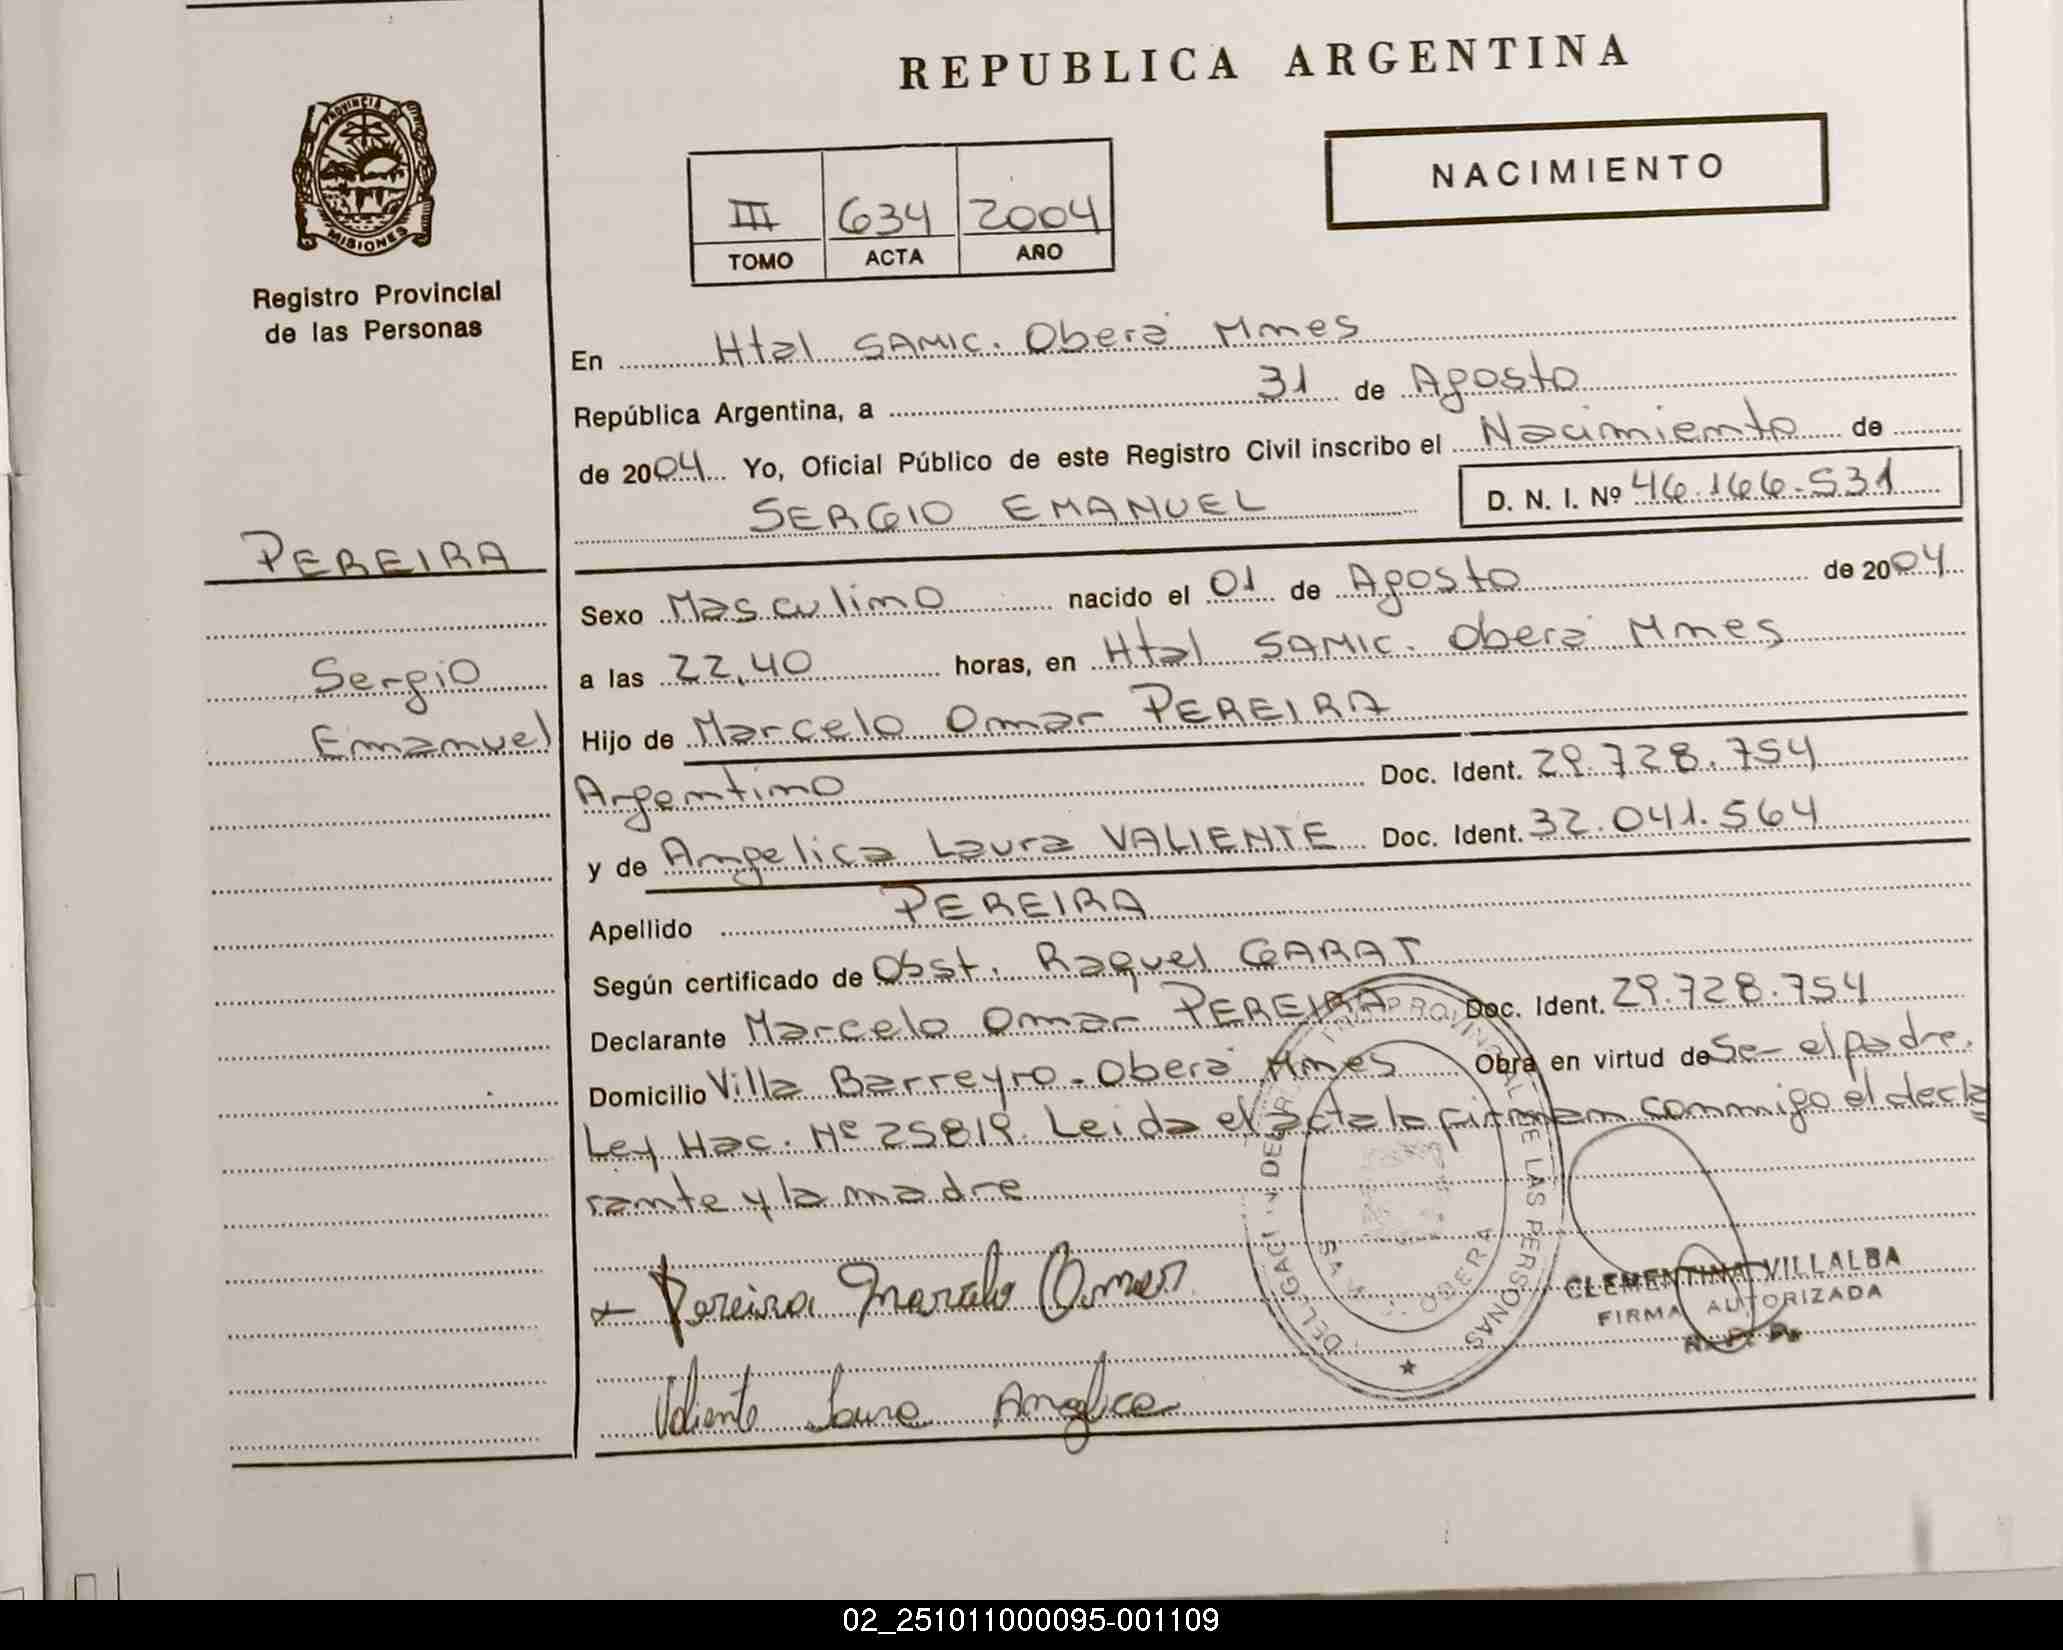 REPUBLICA ARGENTINA
PROVINCIA
MISIONES
Registro Provincial
de las Personas
NACIMIENTO
III 634 2004
TOMO ACTA AÑO
En Htal SAMIC. Oberá Mnes
República Argentina, a 31 de Agosto
de 2004 Yo, Oficial Público de este Registro Civil inscribo el Nacimiento de
SERGIO EMANUEL D. N. I. Nº 46.166.531
PEREIRA
Sergio
Emanuel
Sexo Masculino nacido el 01 de Agosto de 2004
a las 22,40 horas, en Htal SAMIC. Oberá Mnes
Hijo de Marcelo Omar PEREIRA
Argentino Doc. Ident. 29.728.754
y de Angelica Laura VALIENTE Doc. Ident. 32.041.564
Apellido PEREIRA
Según certificado de Obst. Raquel GARAT
Declarante Marcelo Omar PEREIRA Doc. Ident. 29.728.754
Domicilio Villa Barreyro - Oberá Mnes Obra en virtud de Ser el padre.
Ley Nac. Nº 25819. Leida el acta la firman conmigo el decla
rante y la madre
Pereira Marcelo Omar
CLEMENTINA VILLALBA
FIRMA AUTORIZADA
Valiente Laura Angelica
PROVINCIAL DE LAS PERSONAS
OBERA
02_251011000095-001109